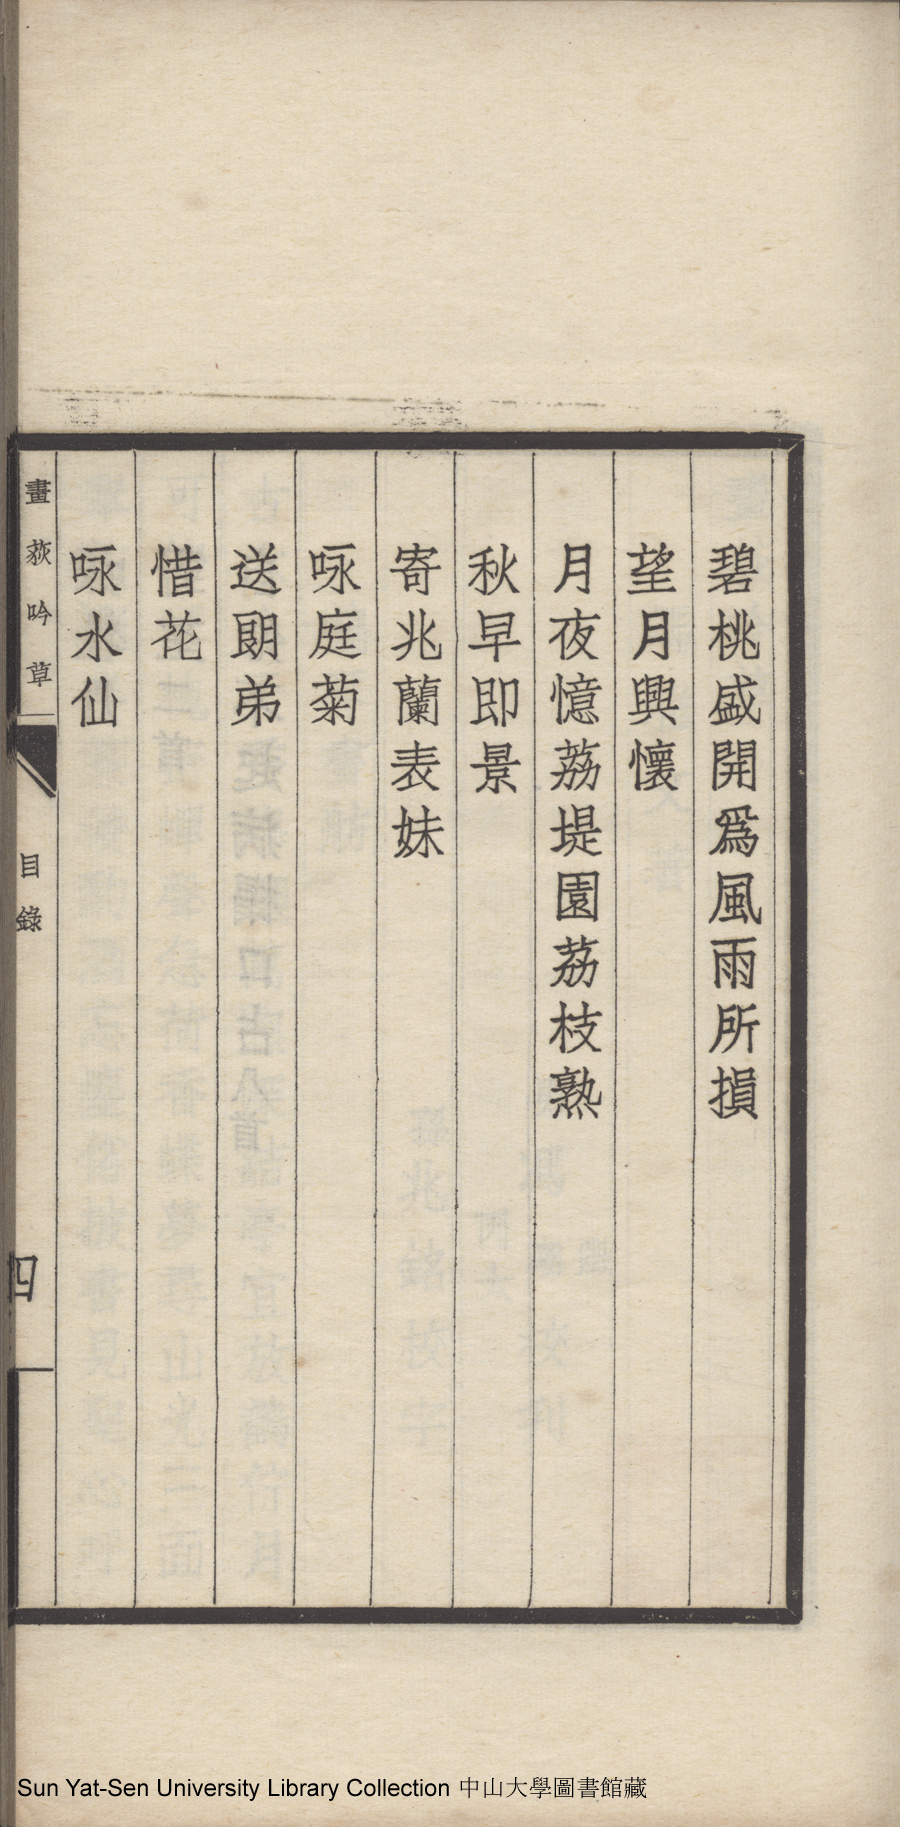 碧桃盛開爲風雨所損
望月興懷
月夜憶荔堤園荔枝熟
秋早即景
寄兆蘭表妹
咏庭菊
送朗弟
惜花
咏水仙
畫荻吟草
目錄
四
Sun Yat-Sen University Library Collection 中山大學圖書館藏